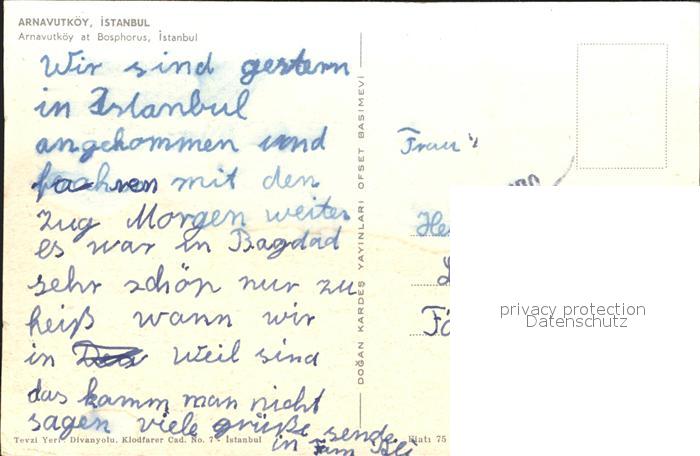 ARNAVUTKÖY, İSTANBUL
Arnavutköy at Bosphorus, İstanbul
Wir sind gestern
in Istanbul
angekommen und
fachren mit den
Zug Morgen weiter
es war in Bagdad
sehr schön nur zu
heiß wann wir
in Weil sind
das kamm man nicht
sagen viele grüße sende
in Fam
Tevzi Yeri: Divanyolu, Klodfarer Cad. No. 7 - İstanbul
Fiatı 75
DOĞAN KARDEŞ YAYINLARI OFSET BASIMEVİ
Frau
privacy protection
Datenschutz